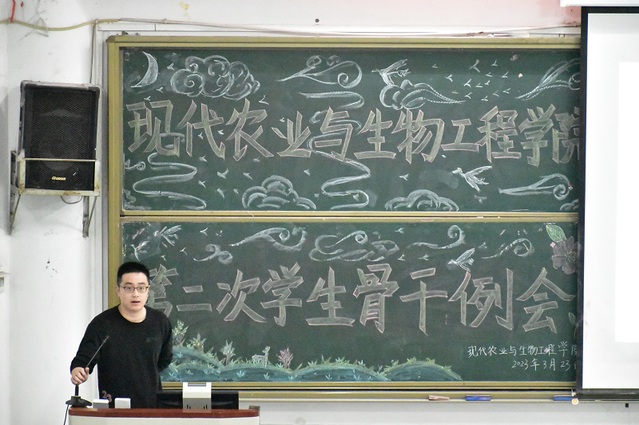 现代农业与生物工程学院
第二次学生骨干例会
现代农业与生物工程学院
2023年3月23